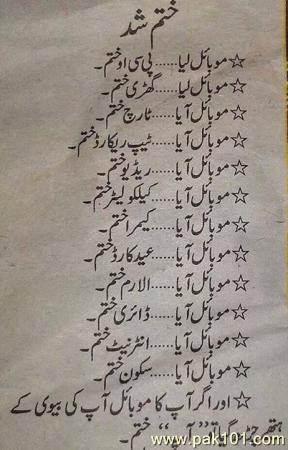 ختم شد
☆موبائل لیا.....پی سی او ختم۔
☆موبائل لیا.....گھڑی ختم۔
☆موبائل آیا.....ٹارچ ختم۔
☆موبائل آیا.....ٹیپ ریکارڈ ختم۔
☆موبائل آیا.....ریڈیو ختم۔
☆موبائل آیا.....کیلکولیٹر ختم۔
☆موبائل آیا.....کیمرا ختم۔
☆موبائل آیا.....عید کارڈ ختم۔
☆موبائل آیا.....الارم ختم۔
☆موبائل آیا.....ڈائری ختم۔
☆موبائل آیا.....انٹرنیٹ ختم۔
☆موبائل آیا.....سکون ختم۔
☆اور اگر آپ کا موبائل آپ کی بیوی کے
ہتھے چڑھ گیا تو "آپ" ختم۔
www.pak101.com